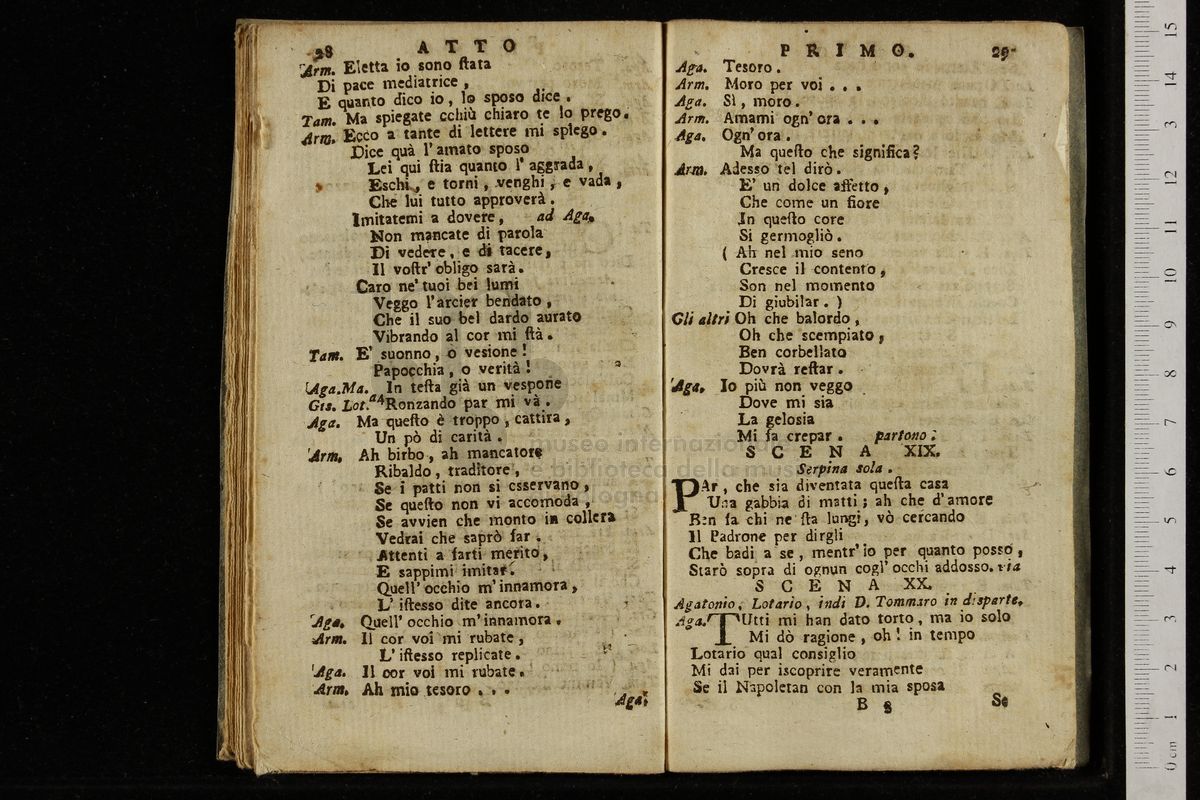 28 ATTO
Arm. Eletta io sono ſtata
Di pace mediatrice,
E quanto dico io, lo sposo dice.
Tam. Ma spiegate cchiù chiaro te lo prego.
Arm. Ecco a tante di lettere mi spiego.
Dice quà l'amato sposo
Lei qui ſtia quanto l'aggrada,
Eschi, e torni, venghi, e vada,
Che lui tutto approverà.
Imitatemi a dovere, ad Aga.
Non mancate di parola
Di vedere, e di tacere,
Il voſtr' obligo sarà.
Caro ne' tuoi bei lumi
Veggo l'arcier bendato,
Che il suo bel dardo aurato
Vibrando al cor mi ſtà.
Tam. E' suonno, o vesione!
Papocchia, o verità!
Aga.Ma. In teſta già un vespone
Gis. Lot. a4 Ronzando par mi và.
Aga. Ma queſto è troppo, cattira,
Un pò di carità.
Arm. Ah birbo, ah mancatore
Ribaldo, traditore,
Se i patti non si osservano,
Se queſto non vi accomoda,
Se avvien che monto in collera
Vedrai che saprò far.
Attenti a farti merito,
E sappimi imitar.
Quell' occhio m'innamora,
L' iſtesso dite ancora.
Aga. Quell' occhio m'innamora.
Arm. Il cor voi mi rubate,
L' iſtesso replicate.
Aga. Il cor voi mi rubate.
Arm. Ah mio tesoro...
Aga.
PRIMO. 29
Aga. Tesoro.
Arm. Moro per voi...
Aga. Sì, moro.
Arm. Amami ogn' ora...
Aga. Ogn' ora.
Ma queſto che significa?
Arm. Adesso tel dirò.
E' un dolce affetto,
Che come un fiore
In queſto core
Si germogliò.
( Ah nel mio seno
Cresce il contento,
Son nel momento
Di giubilar. )
Gli altri Oh che balordo,
Oh che scempiato,
Ben corbellato
Dovrà reſtar.
Aga. Io più non veggo
Dove mi sia
La gelosia
Mi fa crepar. partono.
SCENA XIX.
Serpina sola.
PAr, che sia diventata queſta casa
Una gabbia di matti; ah che d'amore
Ben fa chi ne ſta lungi, vò cercando
Il Padrone per dirgli
Che badi a se, mentr' io per quanto posso,
Starò sopra di ognun cogl' occhi addosso. via
SCENA XX.
Agatonio, Lotario, indi D. Tommaro in disparte.
Aga. TUtti mi han dato torto, ma io solo
Mi dò ragione, oh! in tempo
Lotario qual consiglio
Mi dai per iscoprire veramente
Se il Napoletan con la mia sposa
B Se